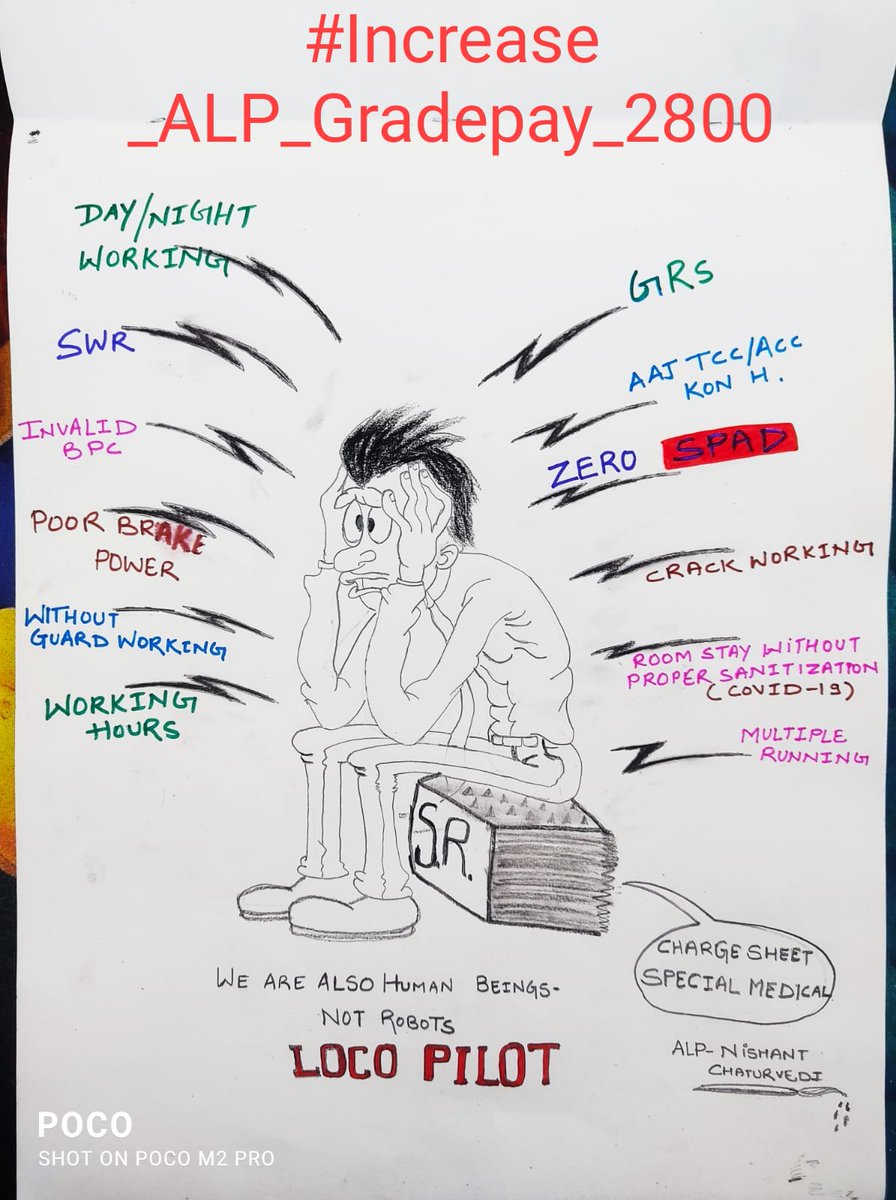 #Increase
_ALP_Gradepay_2800
DAY/NIGHT
WORKING
SWR
INVALID
BPC
POOR BRAKE
POWER
WITHOUT
GUARD WORKING
WORKING
HOURS
GRS
AAJ TCC/ACC
KON H.
ZERO SPAD
CRACK WORKING
ROOM STAY WITHOUT
PROPER SANITIZATION
(COVID-19)
MULTIPLE
RUNNING
S.R.
CHARGE SHEET
SPECIAL MEDICAL
WE ARE ALSO HUMAN BEINGS-
NOT ROBOTS
LOCO PILOT
ALP- NISHANT
CHATURVEDI
POCO
SHOT ON POCO M2 PRO